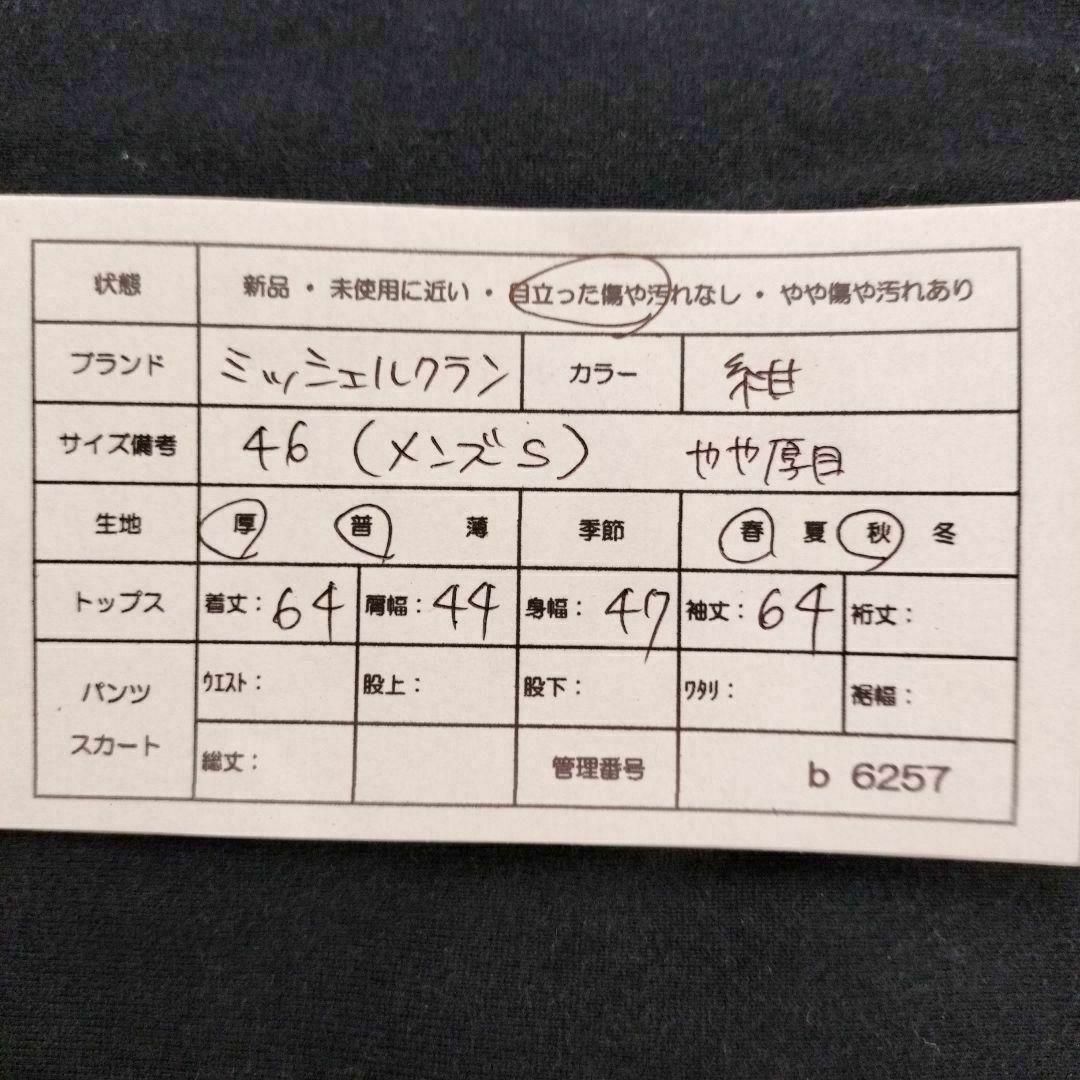 状態 新品 ・ 未使用に近い ・ 目立った傷や汚れなし ・ やや傷や汚れあり
ブランド ミッシェルクラン カラー 紺
サイズ備考 46 (メンズS) やや厚目
生地 厚 普 薄 季節 春 夏 秋 冬
トップス 着丈: 64 肩幅: 44 身幅: 47 袖丈: 64 裄丈:
パンツ スカート ウエスト: 股上: 股下: ワタリ: 裾幅:
総丈: 管理番号 b 6257